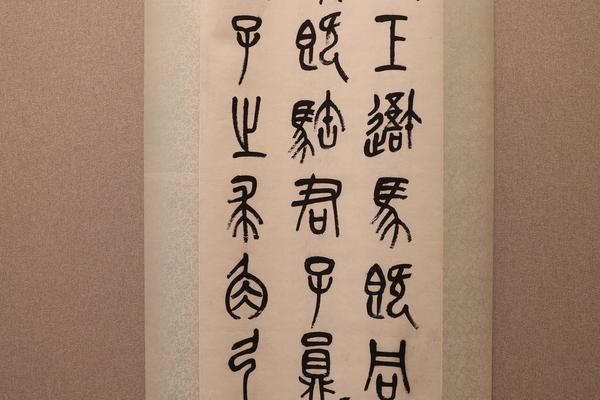 工馬既同
既君子員
子之求角弓